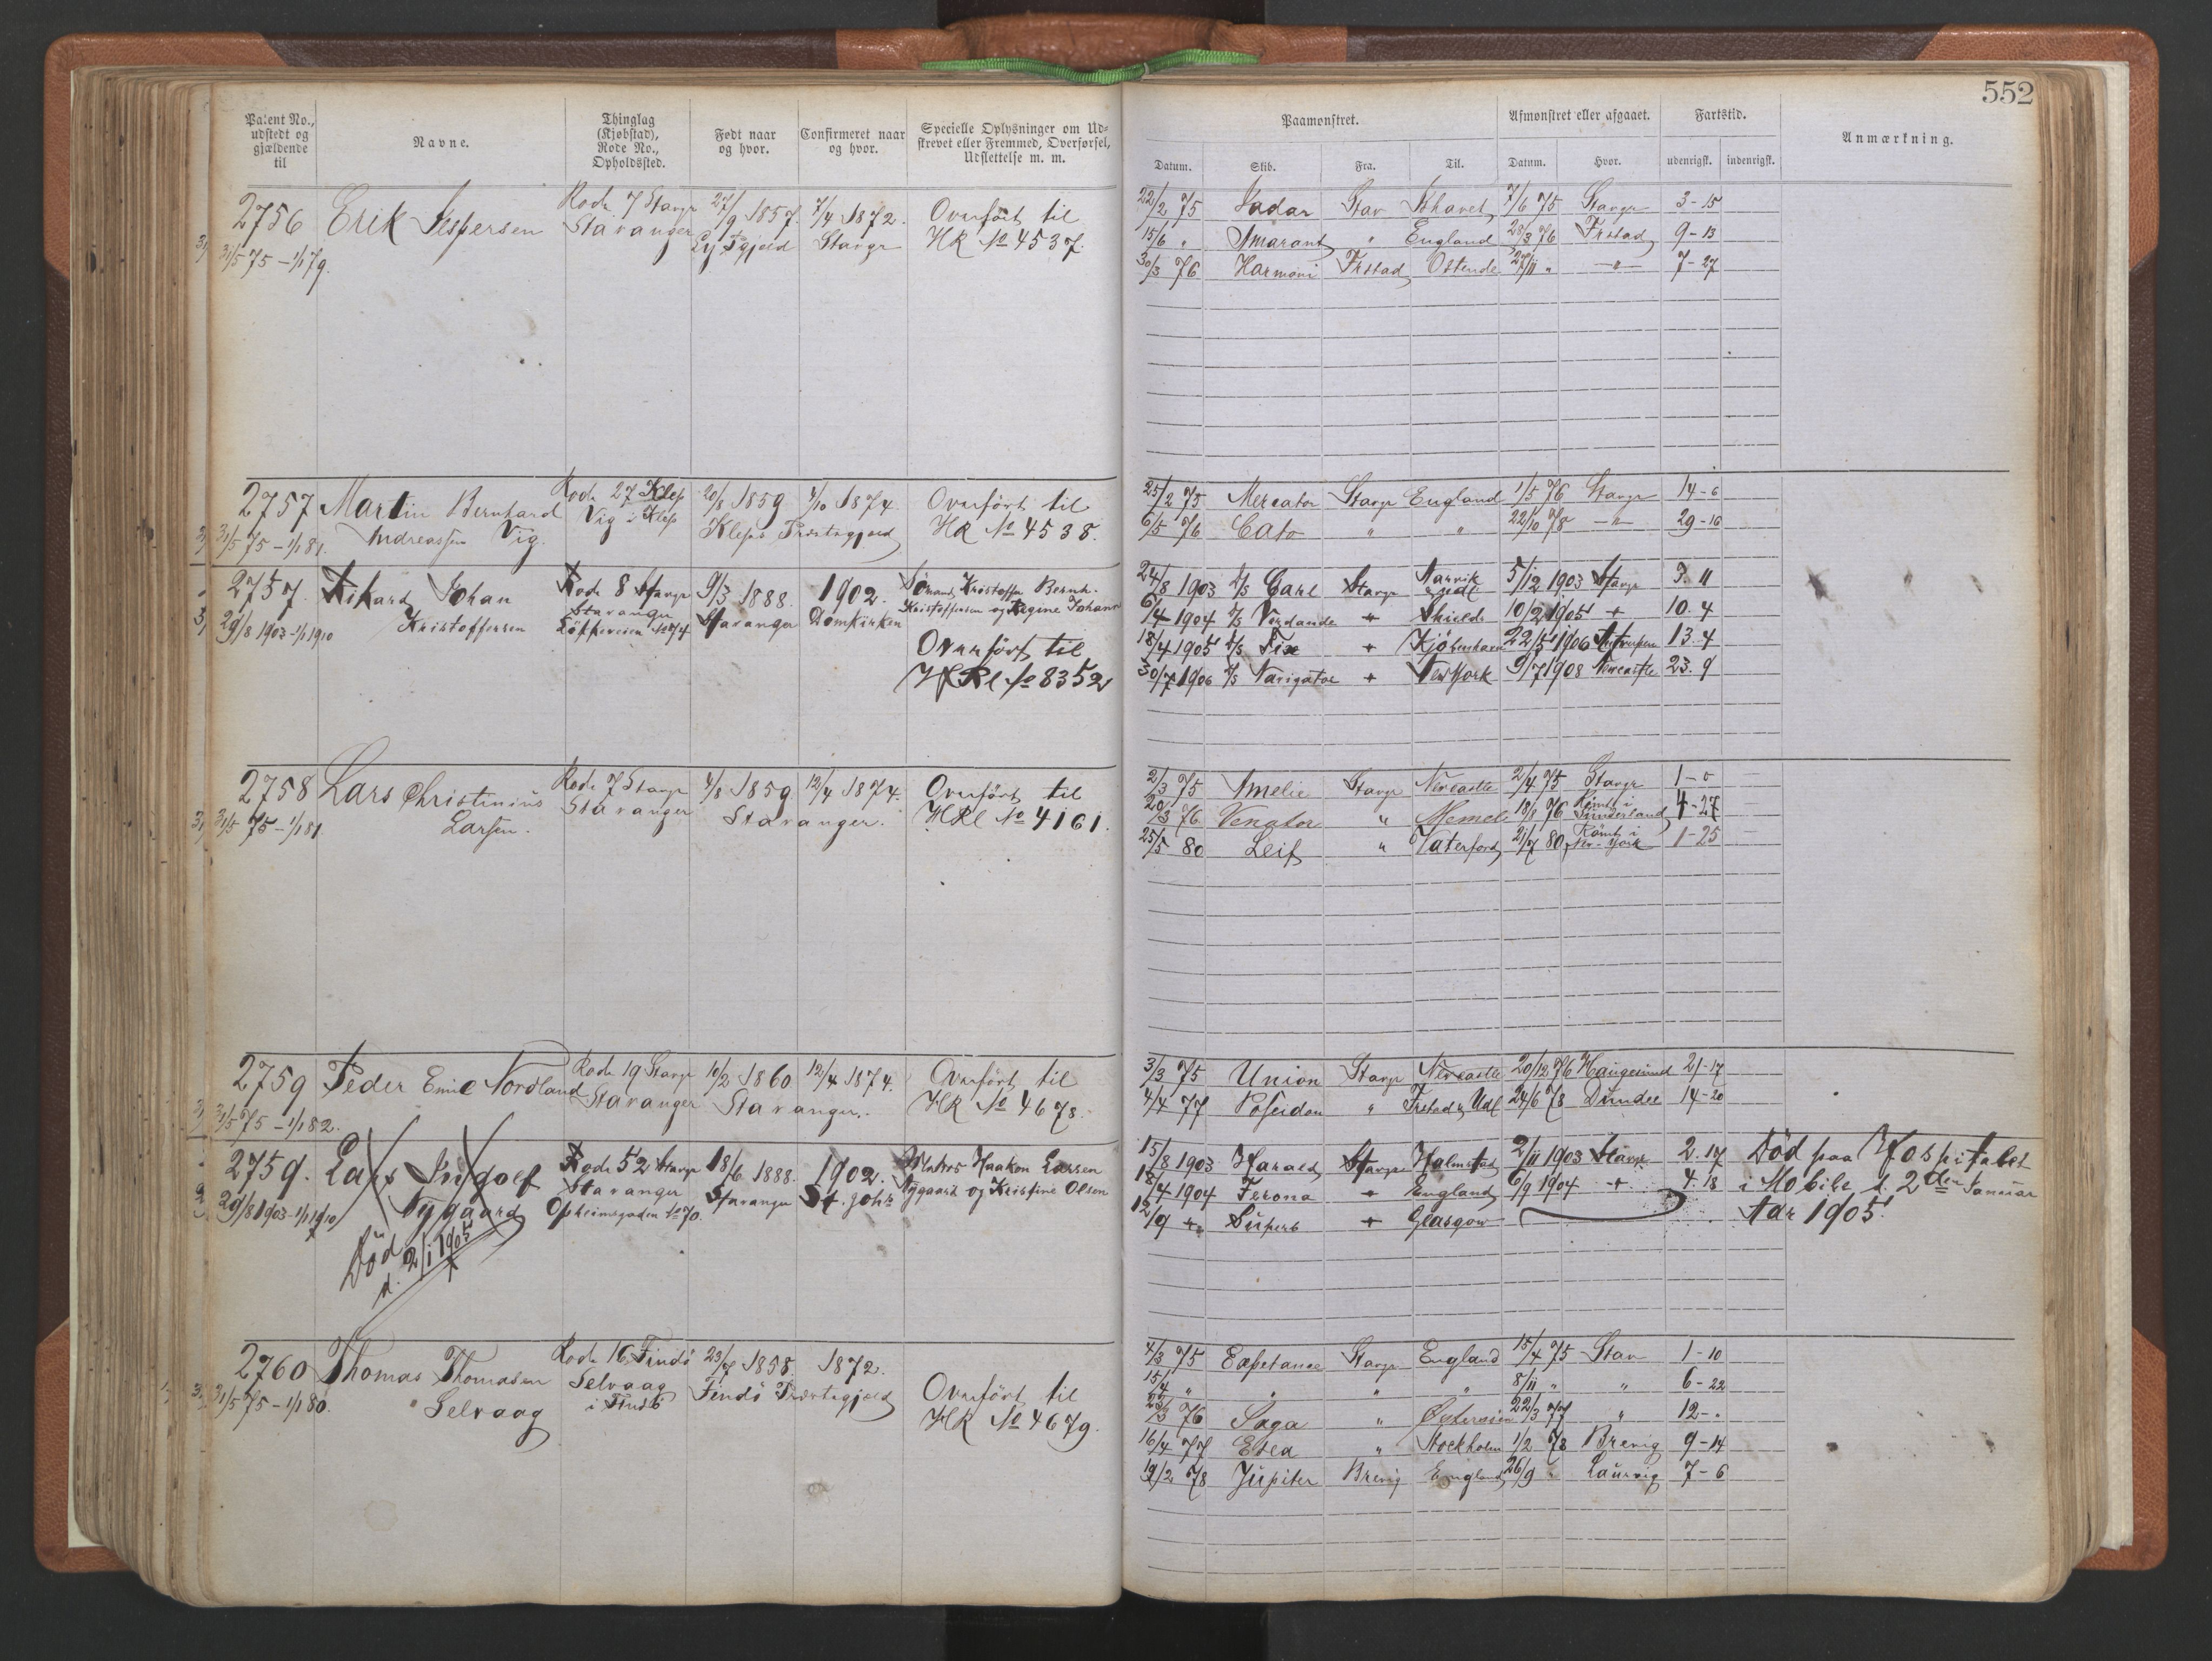 552
Patent No., udstedt og gjældende til
Navne.
Thinglag (Kjøbstad), Rode No., Opholdssted.
Født naar og hvor.
Confirmeret naar og hvor.
Specielle Oplysninger om Udskrevet eller Fremmed, Overførsel, Udslettelse m. m.
Paamønstret.
Afmønstret eller afgaaet.
Fartstid.
Anmærkning.
Datum. Skib. Fra. Til. Datum. Hvor. udenrigsk. indenrigsk.
2756 Erik Jespersen Rode 7 Stavgr 27/9 1857. 7/4 1872. Overført til
31/5 75 - 1/1 79. Stavanger Stavgr HR No 4537.
22/2 75 Jadar Stav 7/6 75 Stavgr 3-15
15/6 " Amarant " England 28/3 76 Frstad 9-13
30/3 76 Harmoni Frstad Ostende 27/11 " -"- 7-27
2757 Martin Bernhard Rode 27 Klep 20/8 1859 4/10 1874. Overført til
31/5 75 - 1/1 81. Andreassen Vig. Vig i Klep Kleps Præstegjæld HR No 4538.
25/2 75 Mercator Stavgr England 1/5 76 Stavgr 14-6
6/5 76 Cato " " 22/10 78 -"- 29-16
2757. Rikard Johan Rode 8 Stavgr 9/3 1888. 1902. Kristoffer Bernh.
29/8 1903-1/1 1910 Kristoffersen Stavanger Stavanger Domkirken Kristoffersen og Regine Johann
Løkkeveien No 74
Overført til
HRl No 8352
24/8 1903 D/s Carl Stavgr Narvik Udl 5/12 1903 Stavgr 3. 11
6/4 1904 D/s Verdande + Shields 10/2 1905 + 10. 4
18/4 1905 D/s Fix + Kjøbenhavn 22/5 1906 Antwerpen 13. 4
30/7 1906 D/s Navigator + New York 9/7 1908 Newcastle 23. 9
2758 Lars Christinius Rode 7 Stavgr 4/8 1859 12/4 1874. Overført til
31/5 75 - 1/1 81 Larsen. Stavanger Stavanger. HRl No 4161.
2/3 75 Amelie Stavgr Newcastle 2/4 75 Stavgr 1-0
20/3 76 Venator " Memel 18/8 76 Rømt i Sunderland 4-27
25/5 80 Leif " Waterford 21/7 80 Rømt i New-York 1-25
2759 Peder Emil Nordland Rode 19 Stavgr 10/2 1860 12/4 1874. Overført til
31/5 75 - 1/1 82. Stavanger Stavanger. HR No 4678.
3/3 75 Union Stavgr Newcastle 20/12 76 Haugesund 21-17
4/4 77 Poseidon " Frstad & Udl 24/6 78 Dundee 14-20
2759. Lars Ingolf Rode 52 Stavgr 18/6 1888. 1902. Matros Haakon Larsen
29/8 1903-1/1 1910 Nygaard Stavanger Stavanger St. Johs Nygaard og Kristine Olsen
Opheimsgaden No 70.
Død
d. 2/1 1905
15/8 1903 Harald Stavgr Halmstad 2/11 1903 Stavgr 2. 17 Død paa Hospitalet
18/4 1904 Ferona + England 6/9 1904 + 4. 18 i Mobile d. 2den Januar
12/9 + Superb + Glasgow Aar 1905.
2760 Thomas Thomasen Rode 16 Findø 23/7 1858. 1872.
31/5 75 - 1/1 80. Selvaag Selvaag i Findø Findø Præstegjæld Overført til
HR No 4679.
4/3 75 Expetance Stavgr England 15/4 75 Stav 1-10
15/4 " " " " 8/11 " " 6-22
23/3 76 Saga " Østersøen 22/3 77 " 12-.
16/4 77 Elsea " Stockholm 1/2 78 Brevig 9-14
19/2 78 Jupiter Brevig England 26/9 " Laurvig 7-6